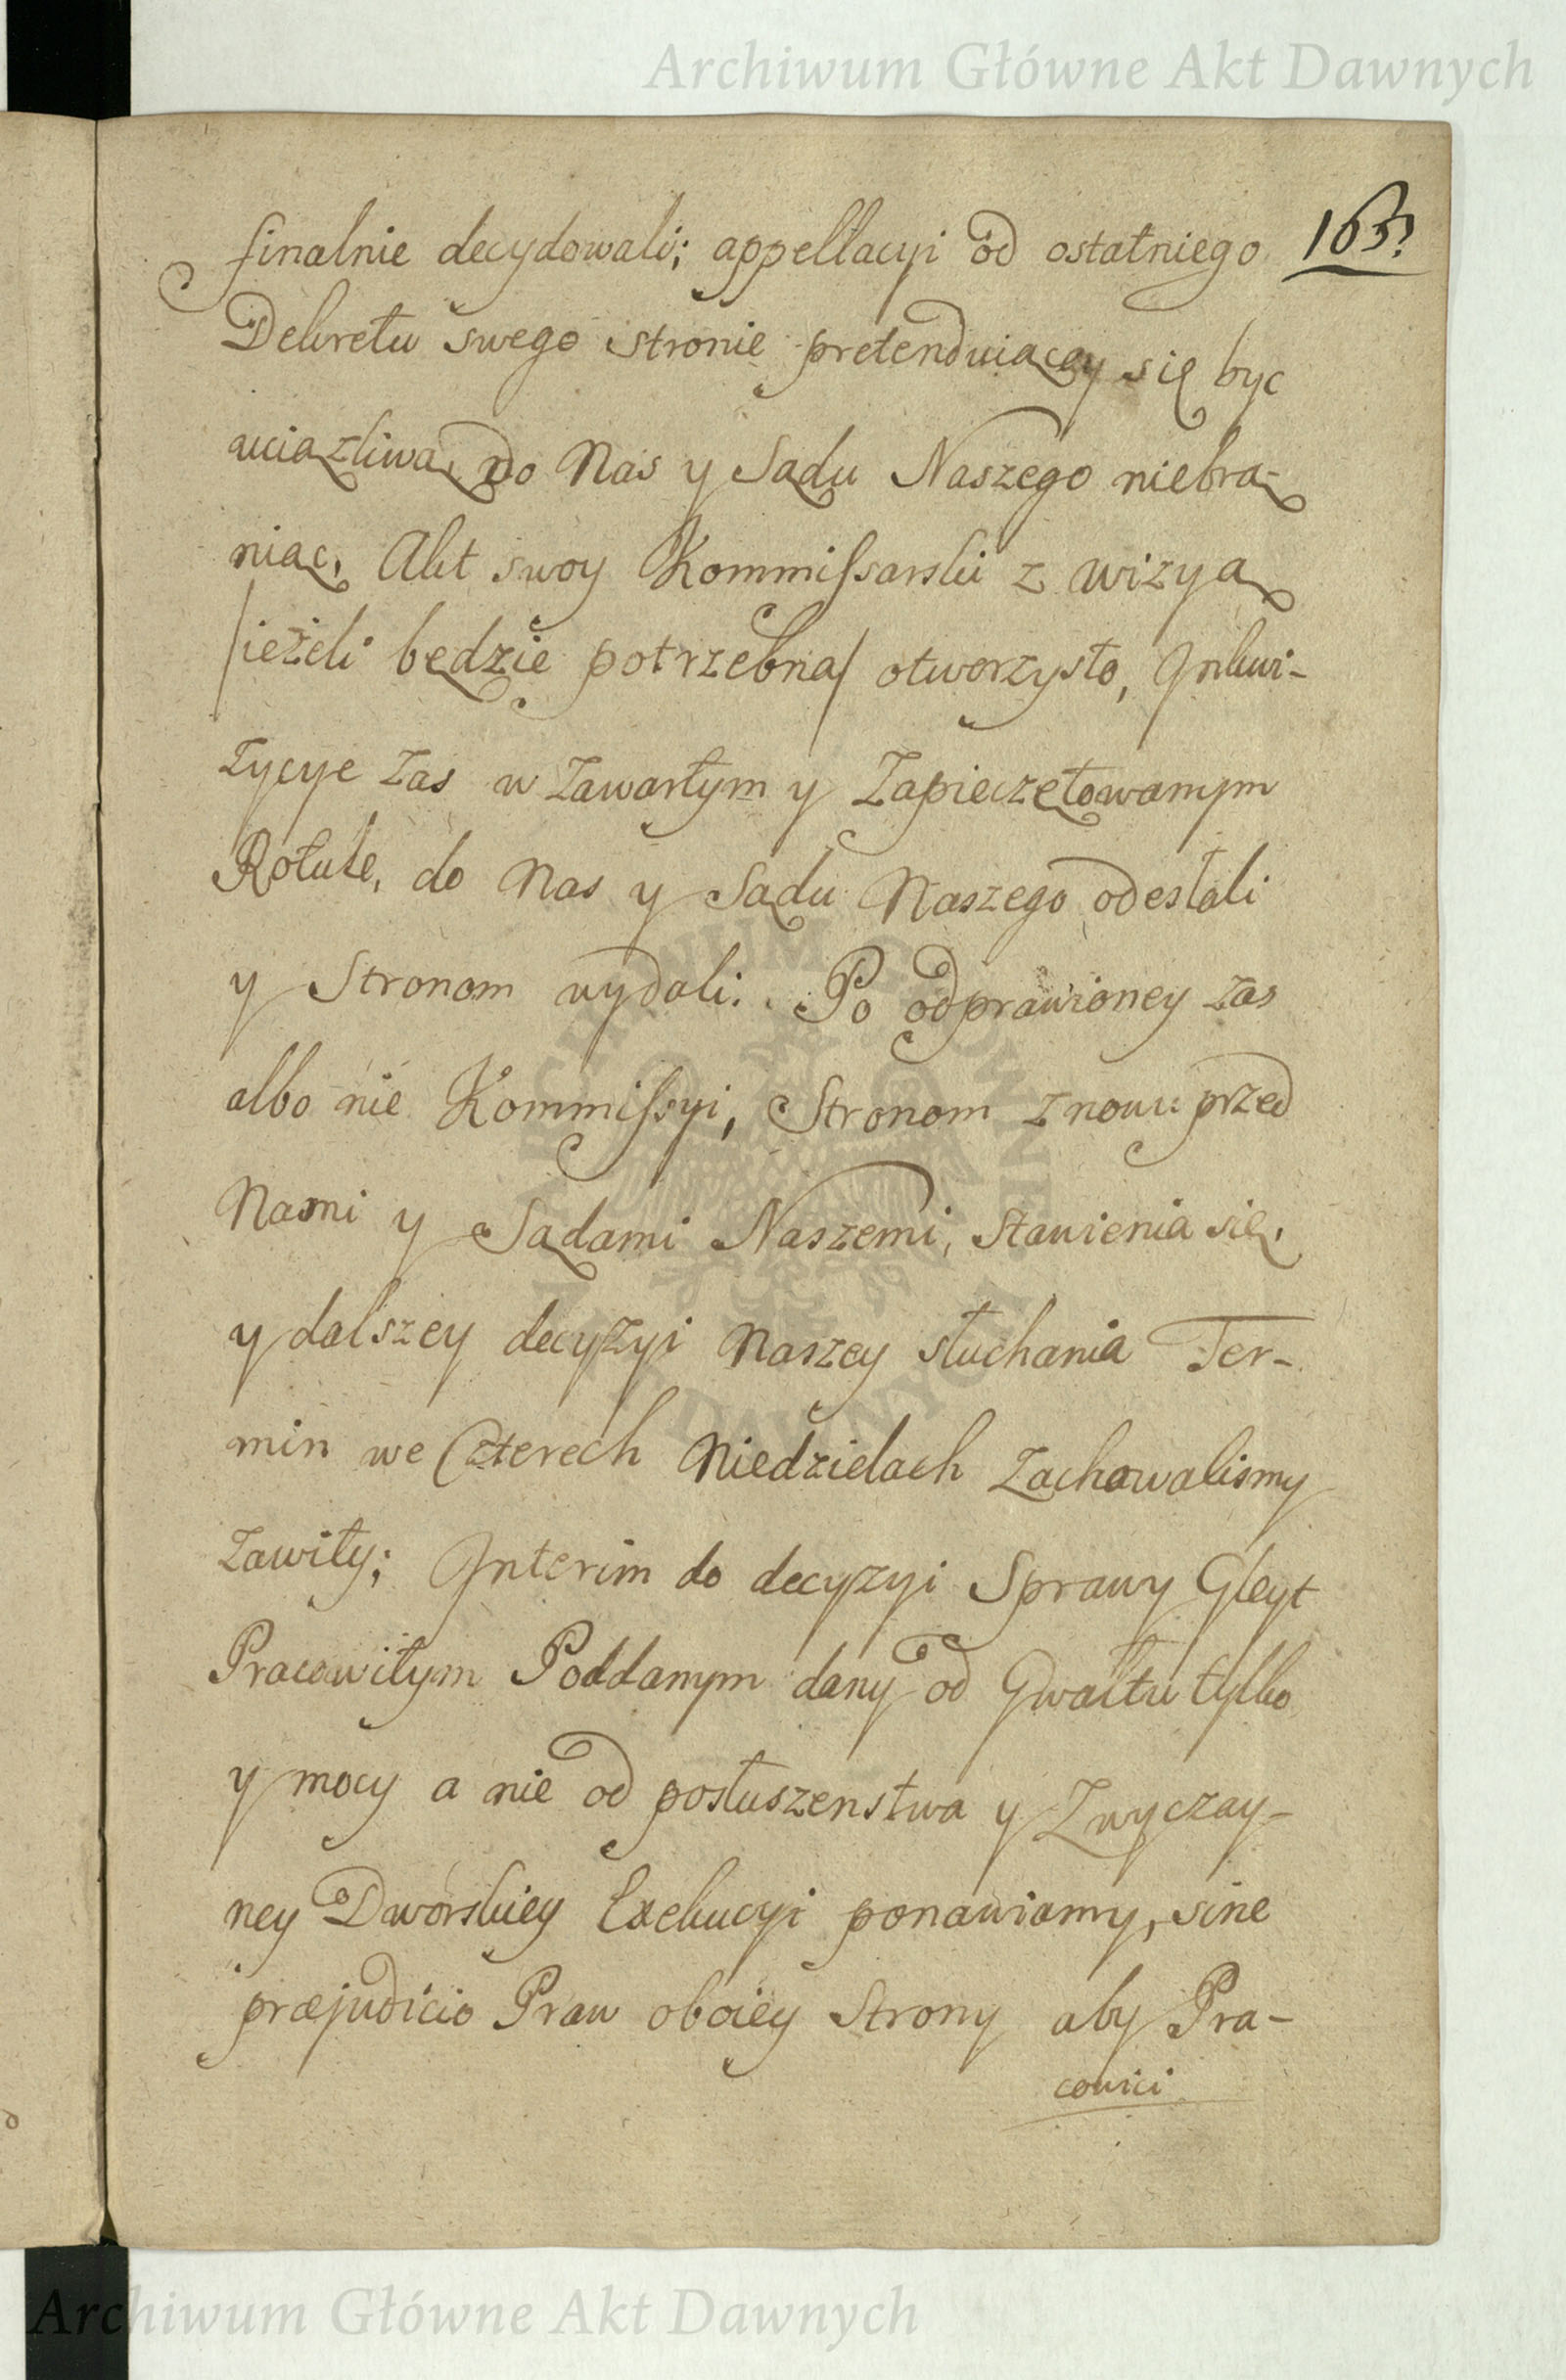 Archiwum Główne Akt Dawnych
163.
finalnie decydowali; appellacyi od ostatniego
Dekretu swego stronie pretenduiącey się byc
uciązliwą, do Nas y Sądu Naszego niebra-
niąc, Akt swoy Kommissarski z wizyą
/ieżeli będzie potrzebna/ otworzysto, Inkwi-
zycye zas w zawartym y zapieczętowanym
Rotule, do Nas y Sądu Naszego odesłali
y Stronom wydali. Po odprawioney zas
albo nie Kommissyi, Stronom znowu przed
Nami y Sądami Naszemi, stawienia się,
y dalszey decyzyi Naszey słuchania Ter-
min we Czterech Niedzielach zachowalismy
zawity; Interim do decyzyi Sprawy Gleyt
Pracowitym Poddanym dany od Gwałtu tylko
y mocy a nie od posłuszenstwa y Zwyczay-
ney Dworskiey Exekucyi ponawiamy, sine
præjudicio Praw oboiey Strony aby Pra-
cowici
Archiwum Główne Akt Dawnych